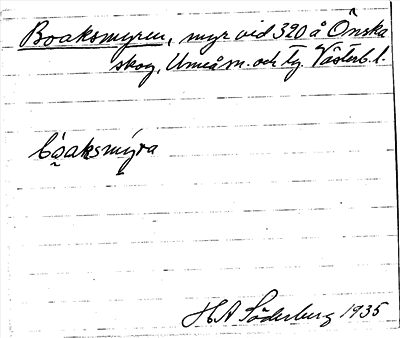 Boaksmyren, myr vid 320 å Önska
skog, Umeå sn. och tg. Västerb. l.
bòaksmýra
H A Söderberg 1935